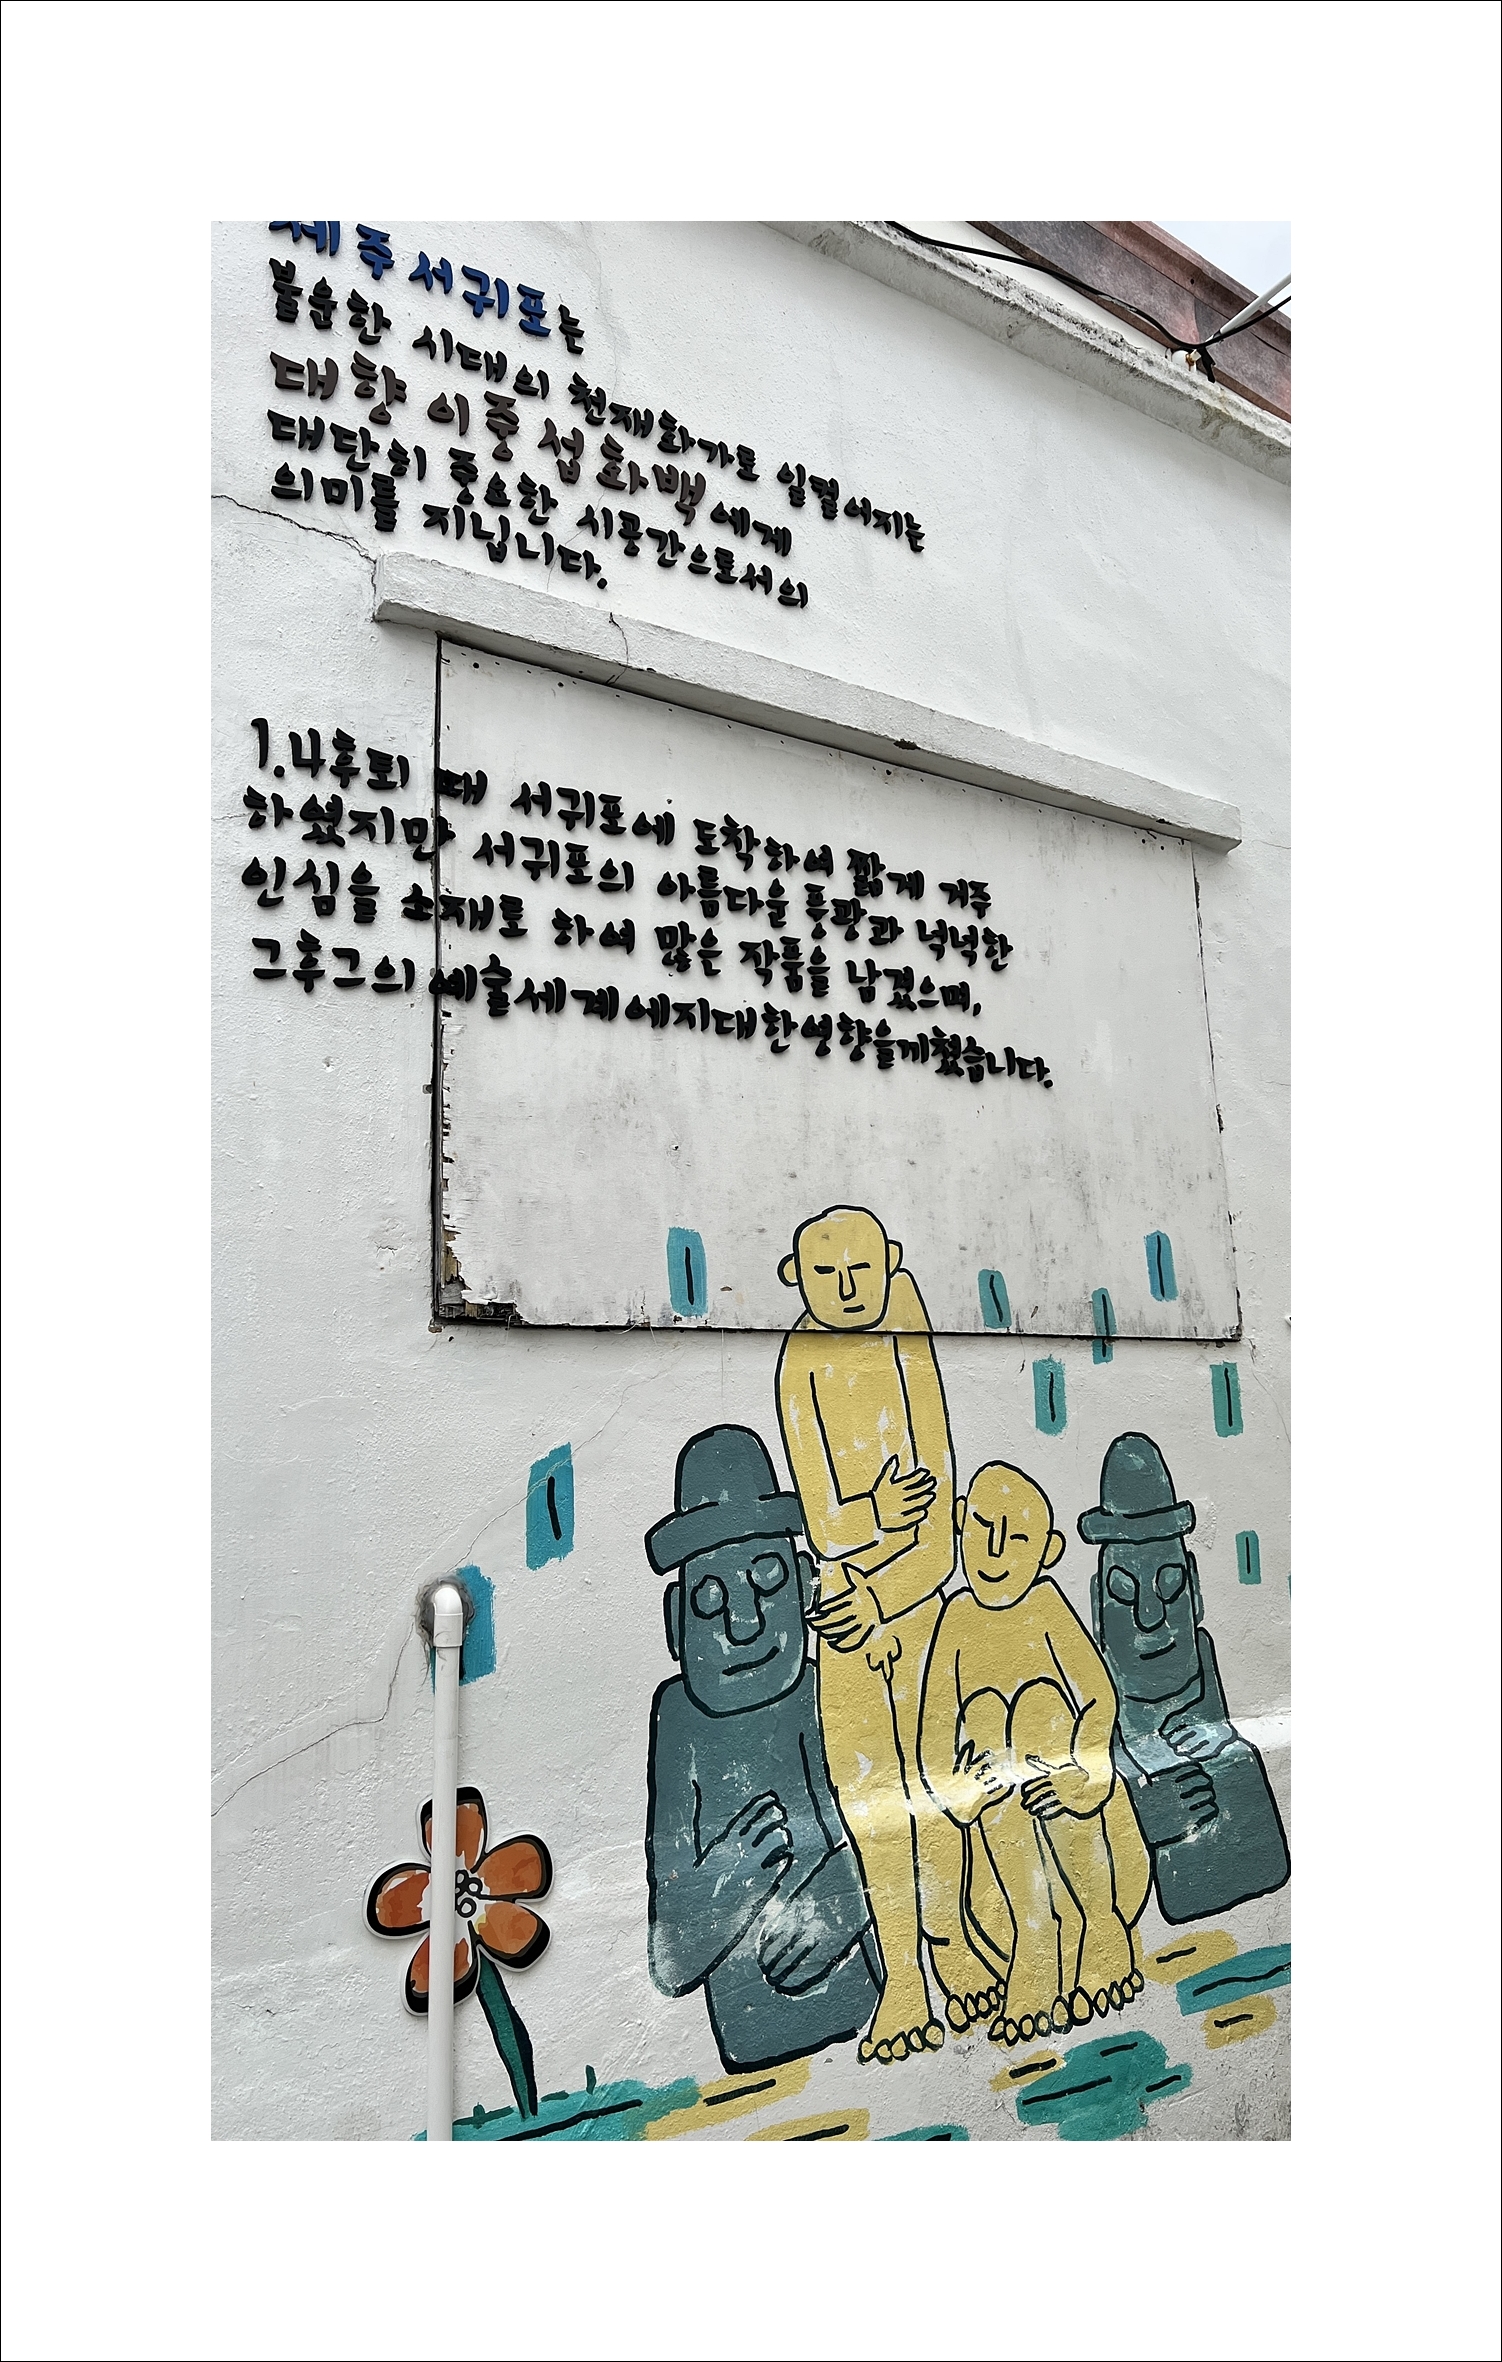 제주서귀포는
불운한 시대의 천재화가로 일컬어지는
대향 이중섭화백에게
대단히 중요한 시공간으로서의
의미를 지닙니다.
1.4후퇴 때 서귀포에 도착하여 짧게 거주
하였지만 서귀포의 아름다운 풍광과 넉넉한
인심을 소재로 하여 많은 작품을 남겼으며,
그후그의 예술세계에지대한영향을끼쳤습니다.